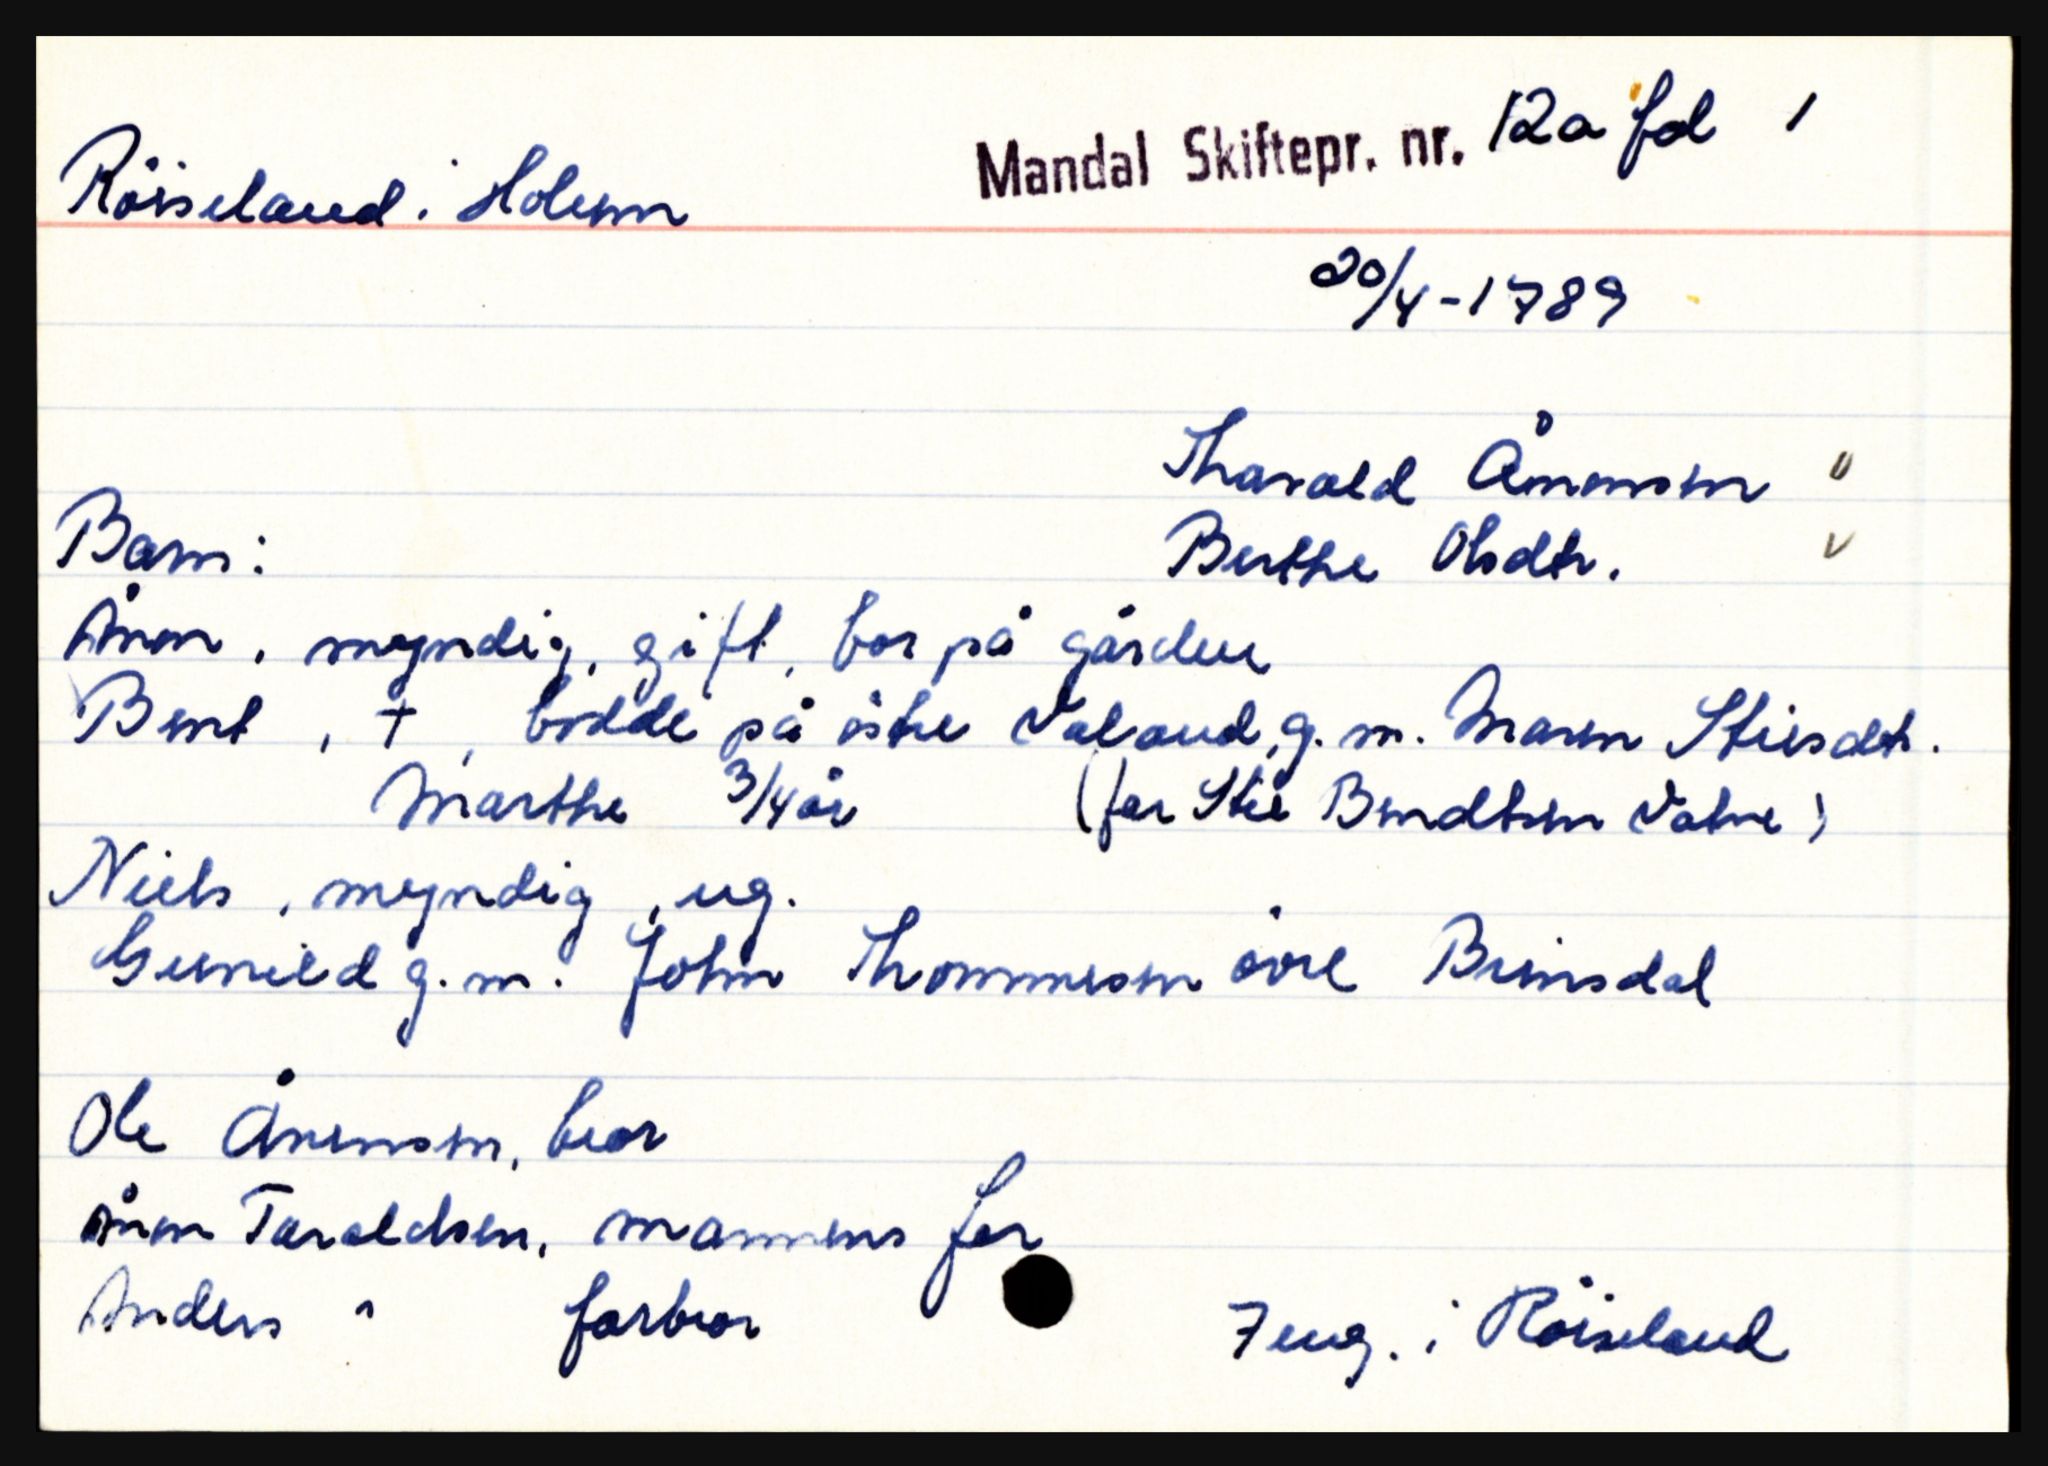 Röiseland i Holum
Mandal Skiftepr. nr. 12a fol 1
20/4-1789
Tharald Ånensen "
Berthe Olsdtr. v
Barn:
Ånen, myndig, gift, bor på gården
Bent, †, bodde på östre Valand, g.m. Maren Stiesdtr.
Marthe 3/4 år (far Stie Bendtsen Vatne)
Niels, myndig, ug.
Gunild g.m. John Thommesen övre Brinsdal
Ole Ånensen, bror
Ånen Taraldsen, mannens far
Anders " farbror
7 eng. i Röiseland